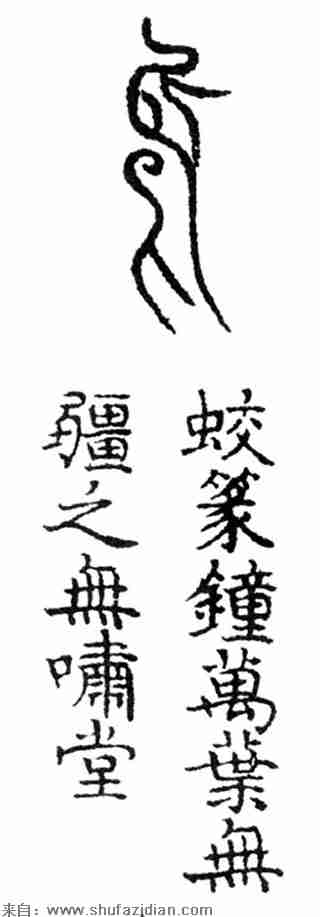 蛟篆鐘萬葉無
疆之無嘯堂
来自：www.shufazidian.com